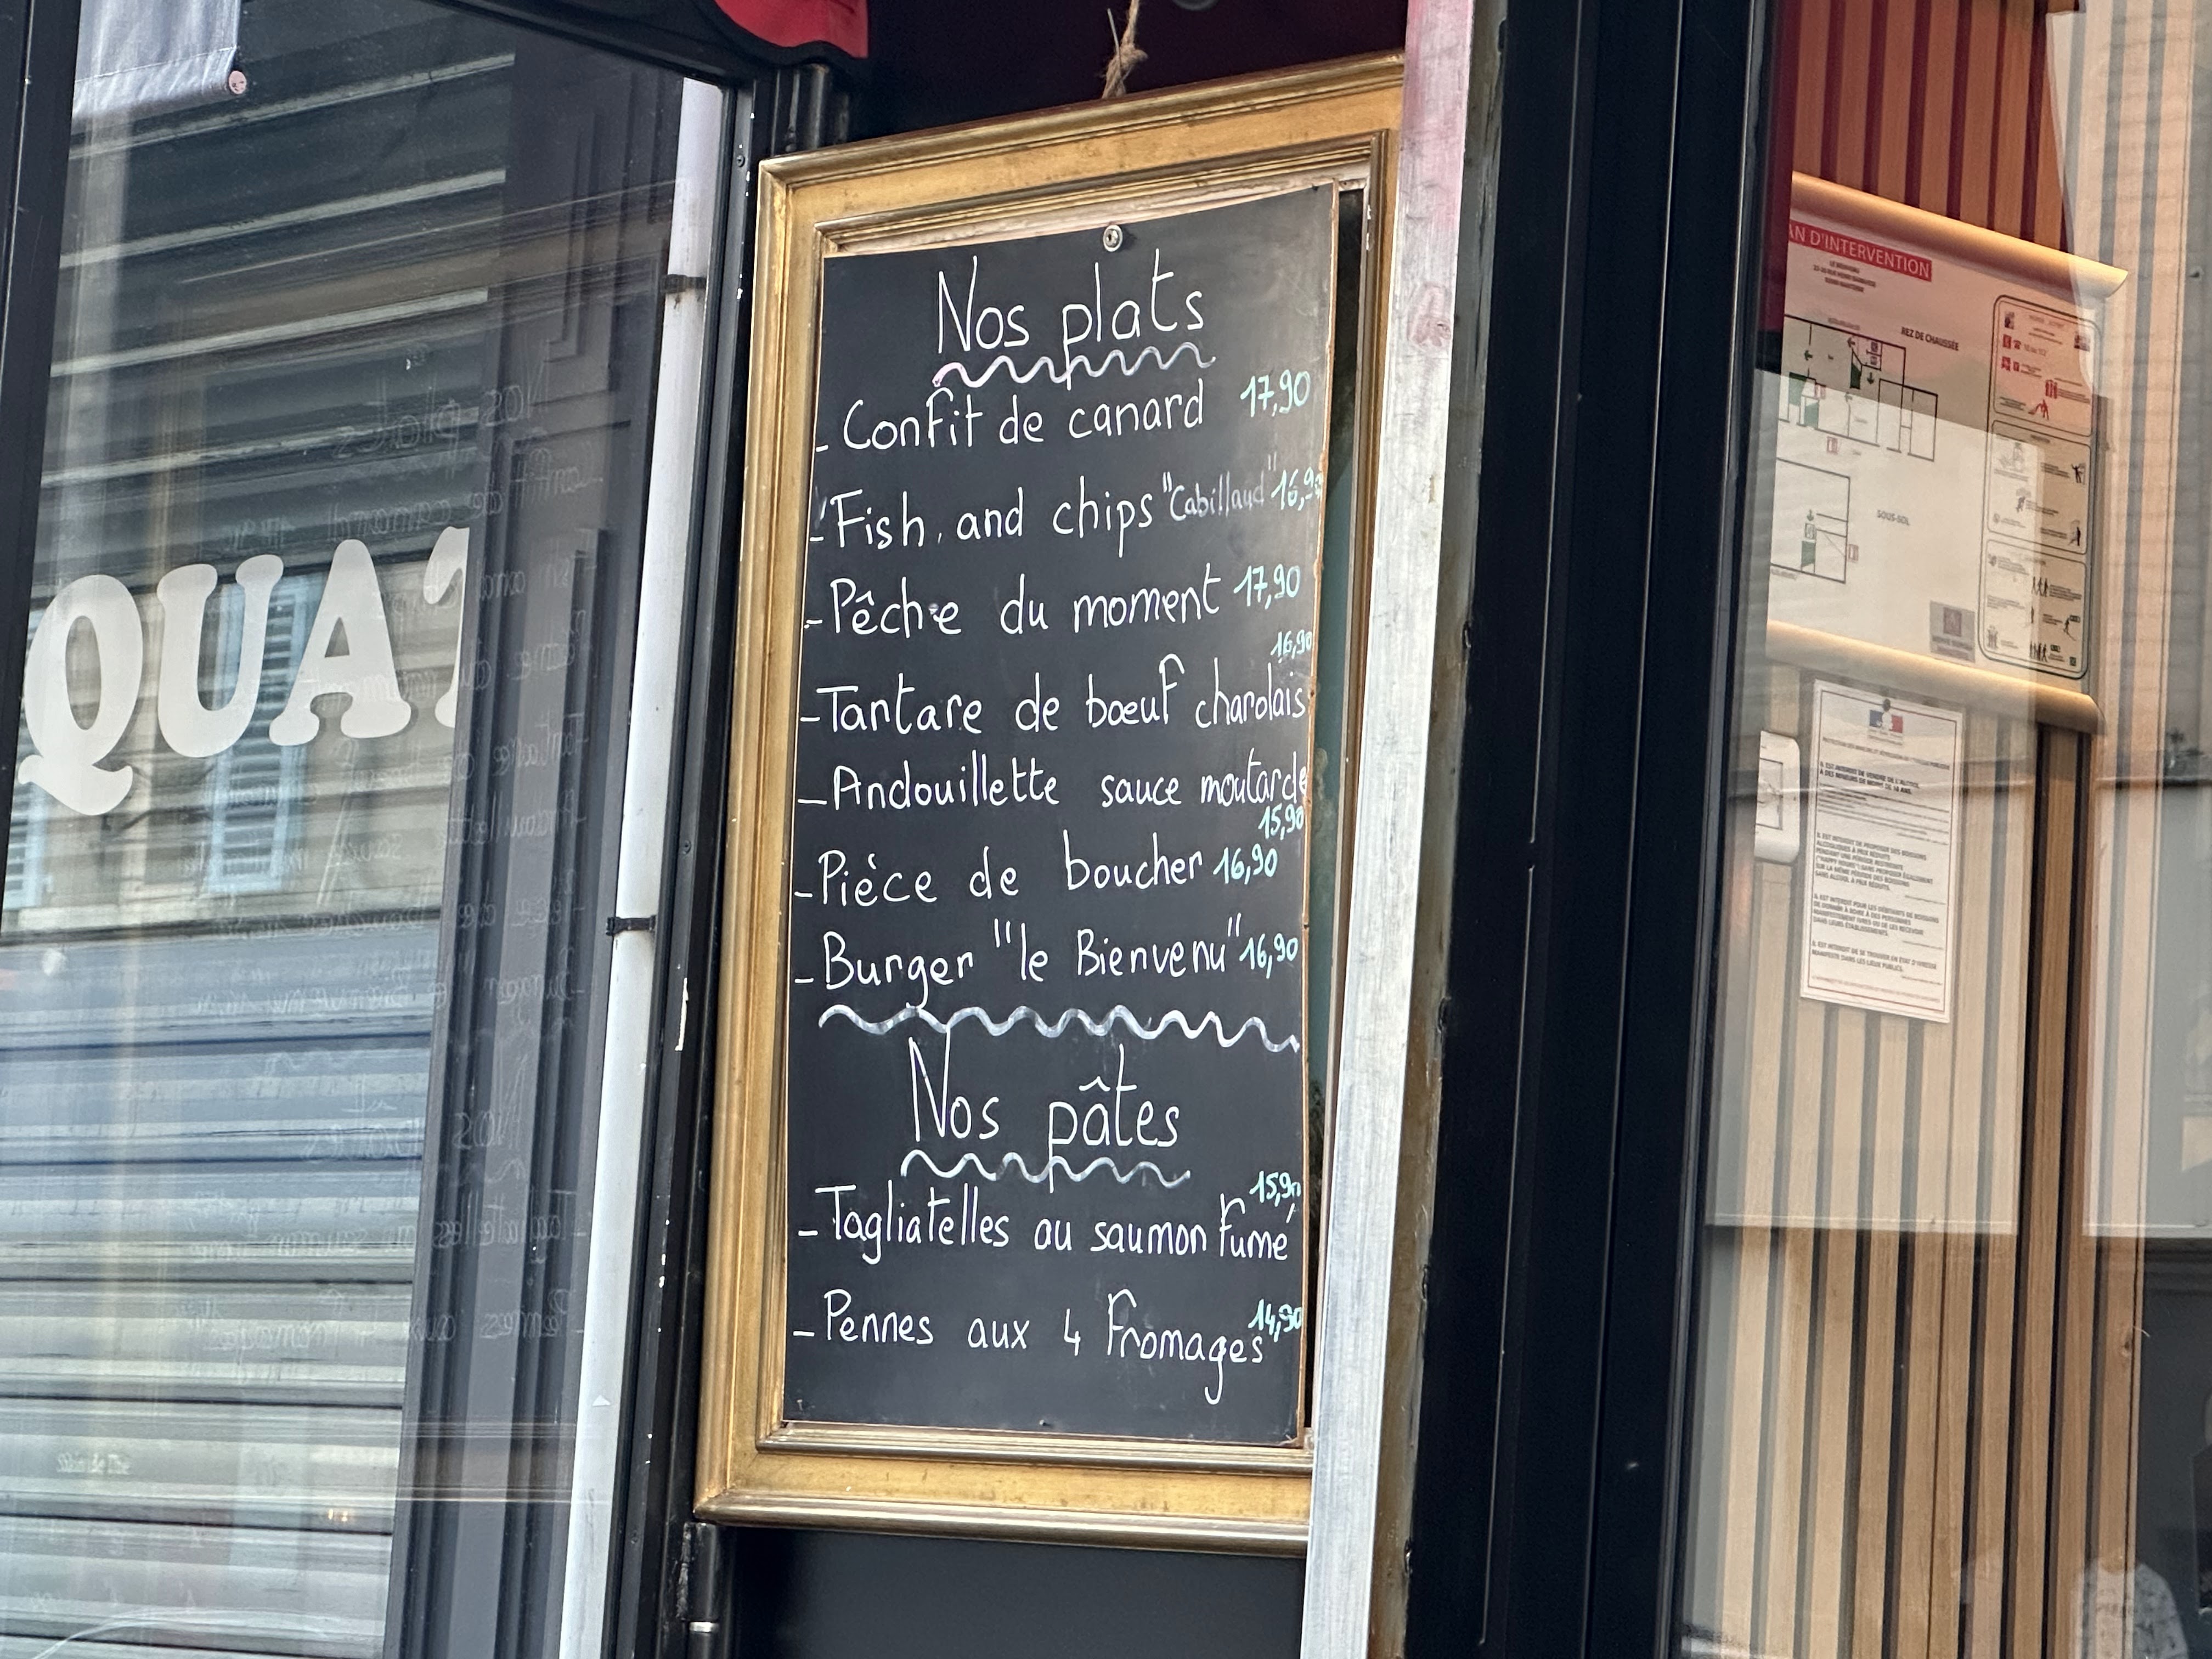 QUA
Nos plats
- Confit de canard 17,90
- Fish and chips "Cabillaud" 16,90
- Pêche du moment 17,90
16,90
- Tartare de bœuf charolais
- Andouillette sauce moutarde
15,90
- Pièce de boucher 16,90
- Burger "le Bienvenu" 16,90
Nos pâtes
15,90
- Tagliatelles au saumon fumé
- Pennes aux 4 fromages 14,90
AN D'INTERVENTION
REZ DE CHAUSSÉE
SOUS-SOL